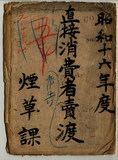 昭和十六年度
直接消費者賣渡
煙草課